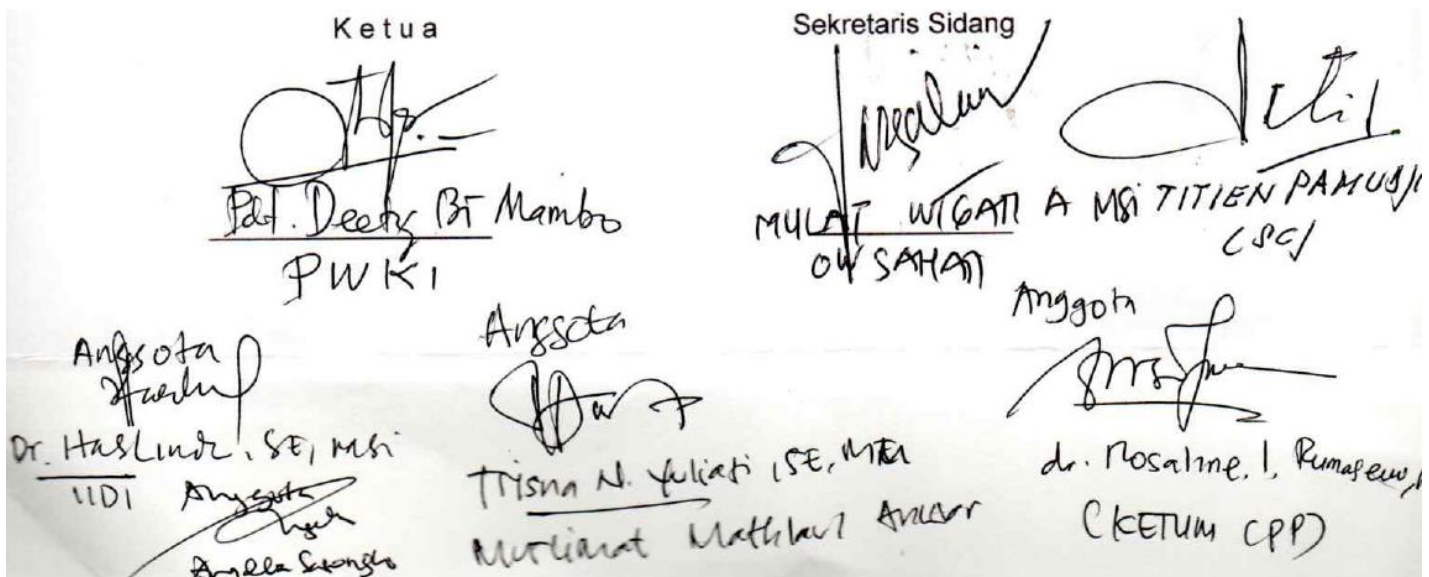 Ketua
Pdt. Deetje BT Mambo
PWKI
Sekretaris Sidang
MULAT WIGATI A MSi
TITIEN PAMUDJI
(SC)
Anggota
Dr. Haslinda, SE, MSi
IIDI
Anggota
Anggota
Trisna N. Yuliati, SE, MM
Muslimat Mathlaul Anwar
Anggota
dr. Rosaline, I, Rumaseuw,
(KETUM CPP)